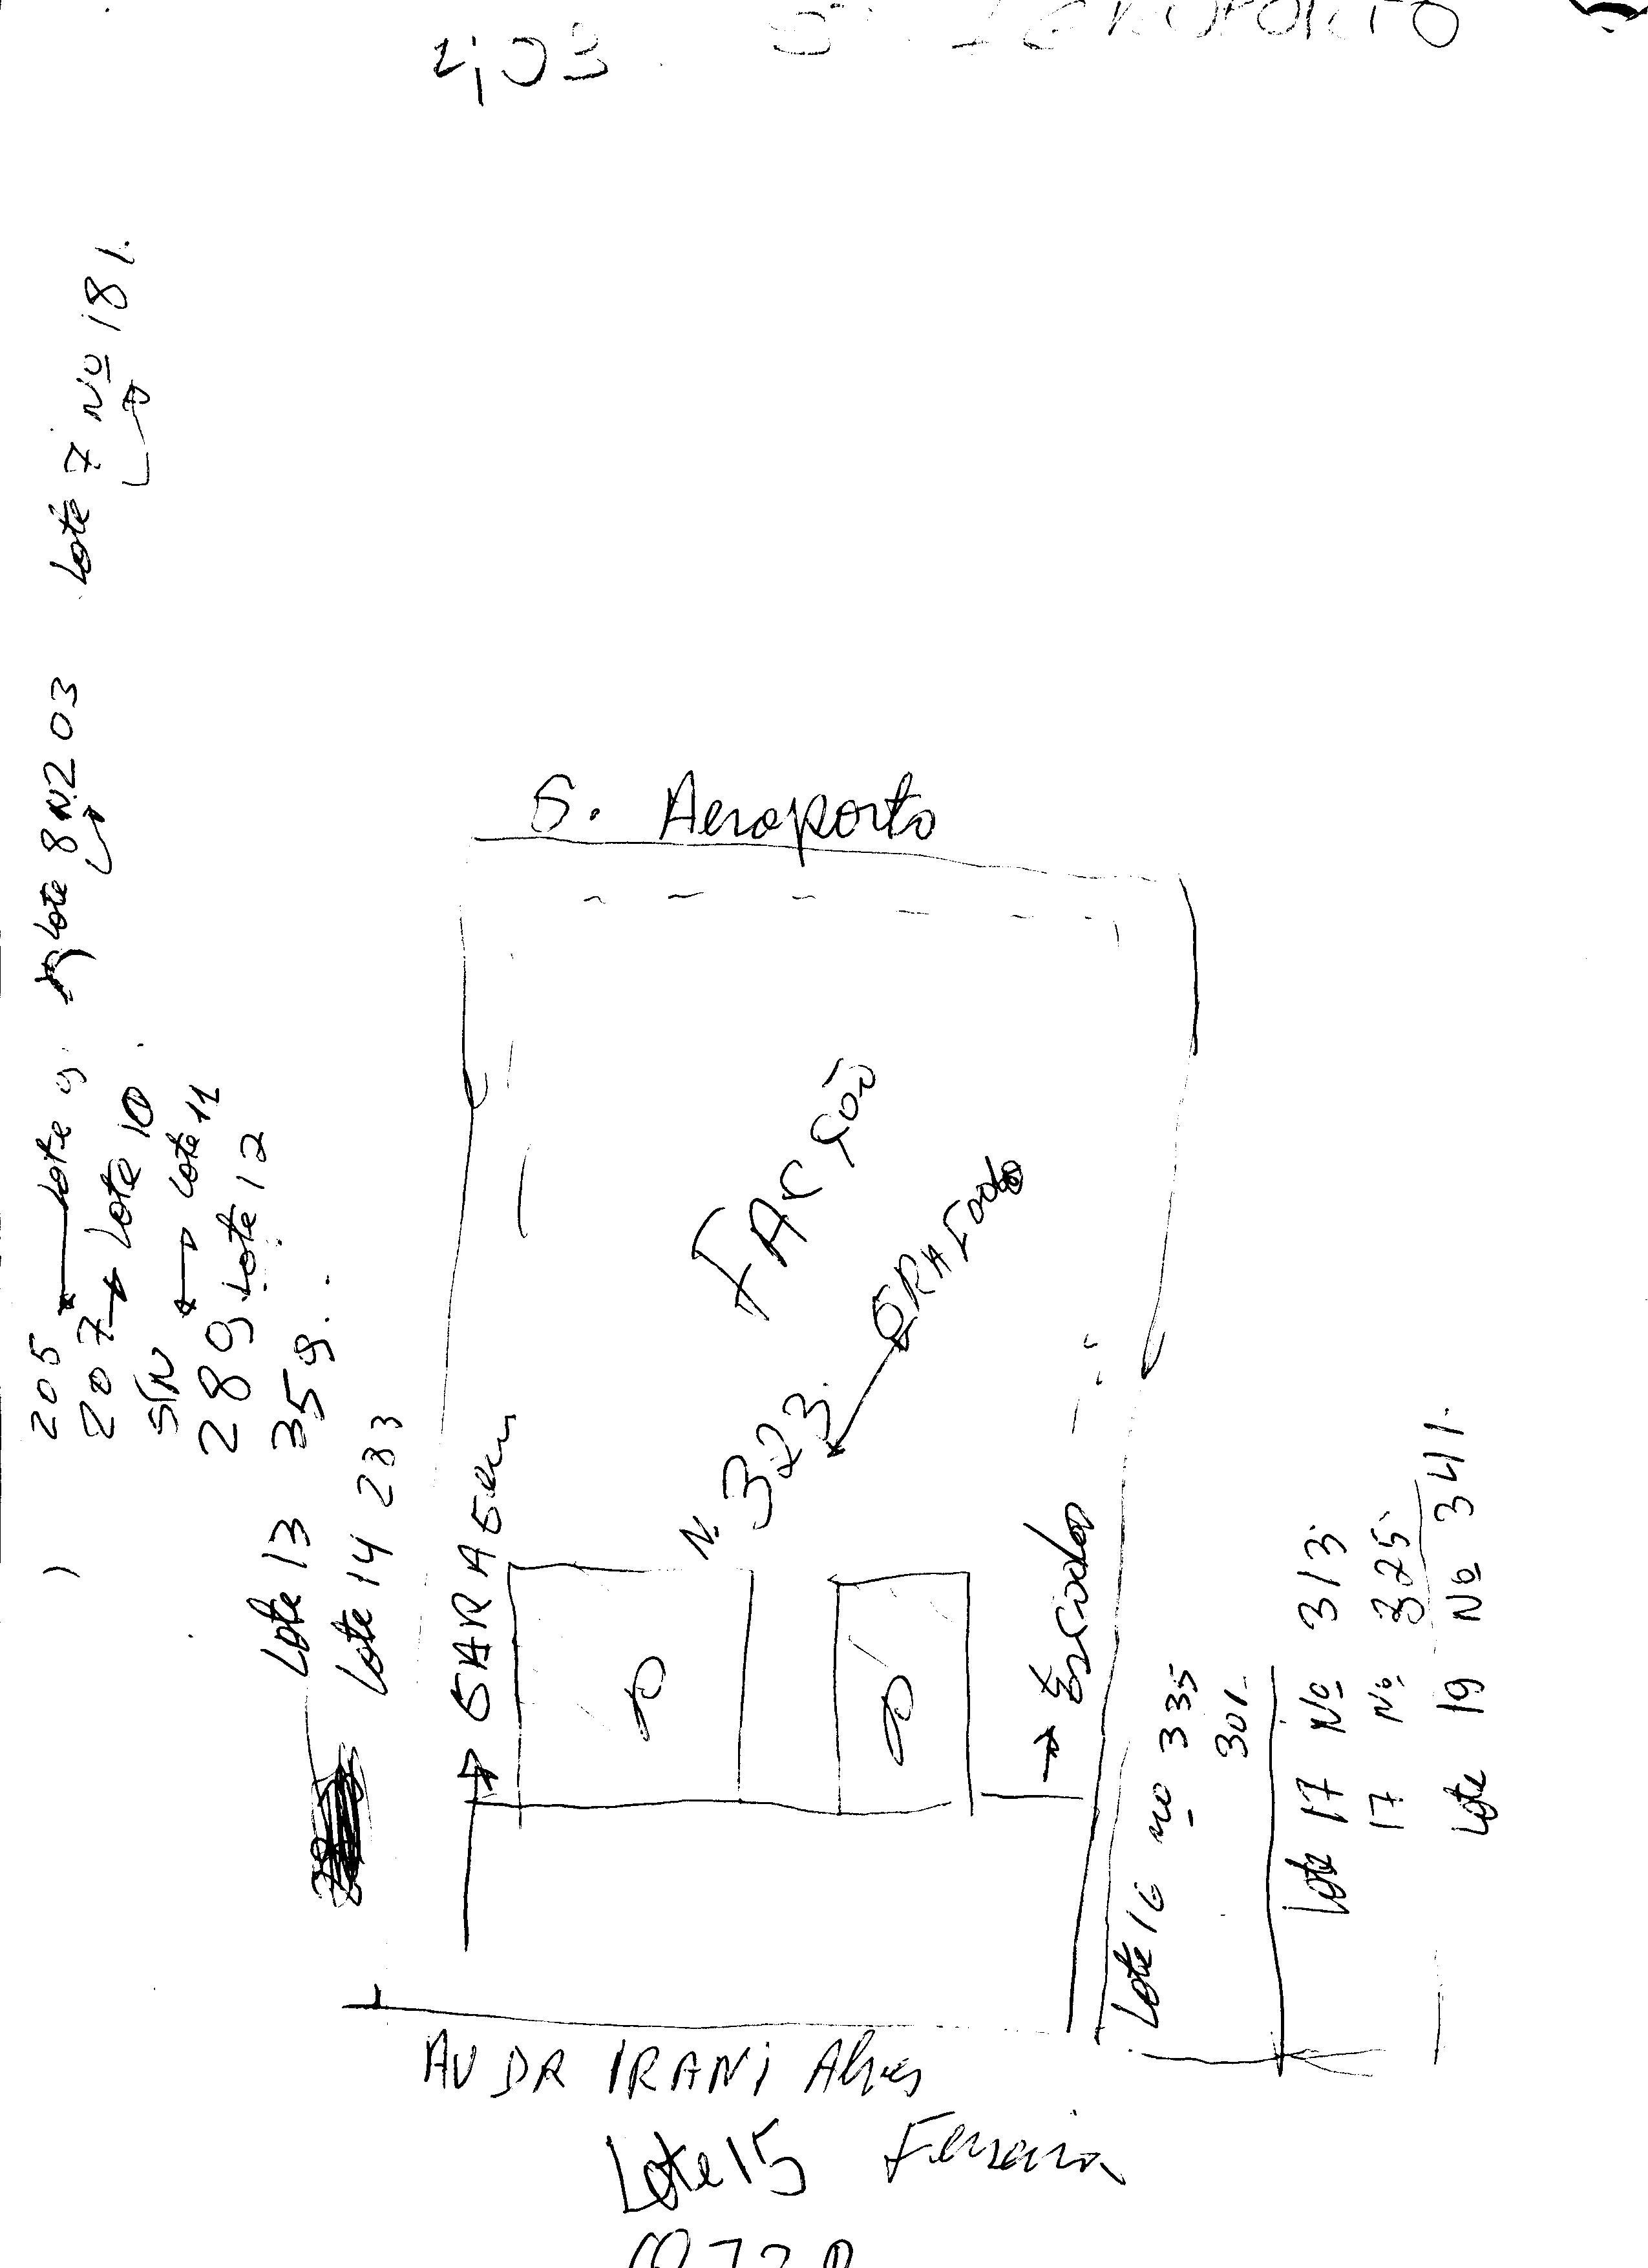 2,03
S. Aeroporto
Lote 7 Nº 181.
Lote 8 N.203
205 Lote 9
207 Lote 10
S/N Lote 11
289 Lote 12
Lote 13 359.
Lote 14 283
GARAGem
N. 323.
Lote 16 nº 335
301.
Lote 17 Nº 313.
17 Nº 325.
Lote 19 Nº 341.
AV DR IRANI Alves
Ferreira
Lote 15